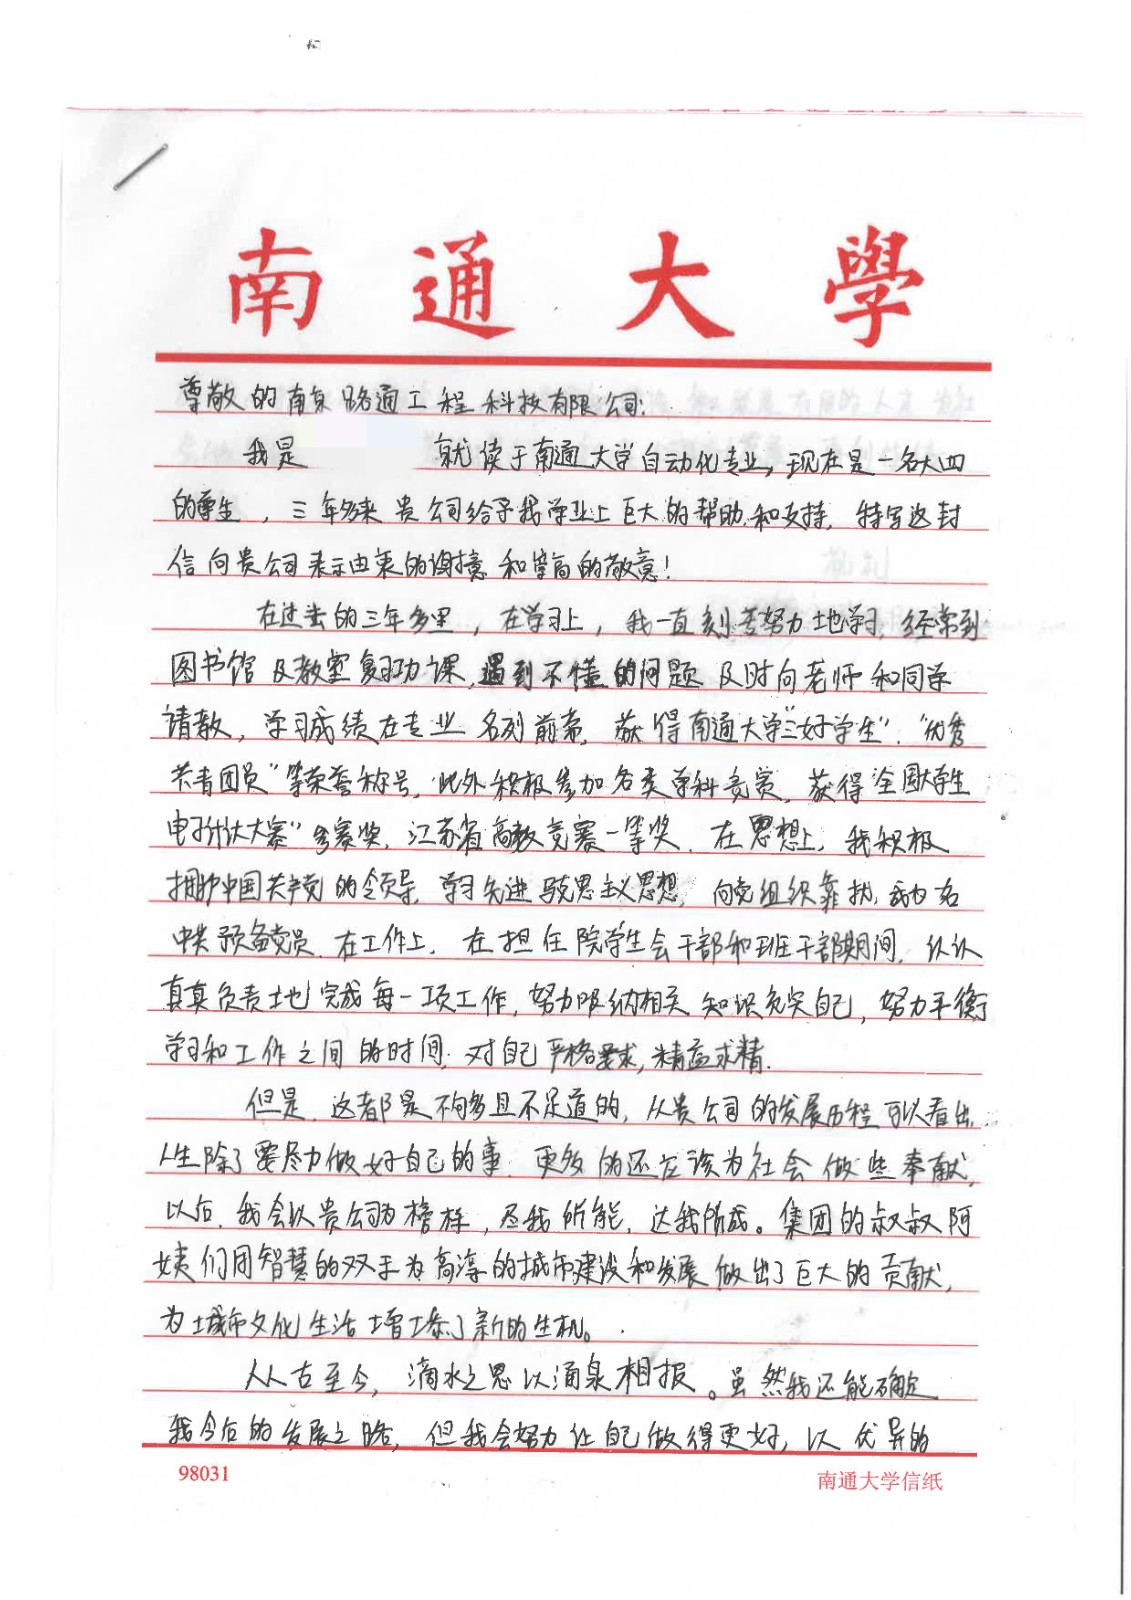 南通大學
尊敬的南京路通工程科技有限公司:
我是 就读于南通大学自动化专业,现在是一名大四
的学生,三年多来贵公司给予我学业上巨大的帮助和支持,特写这封
信向贵公司表示由衷的谢意和崇高的敬意!
在过去的三年多里,在学习上,我一直刻苦努力地学习,经常到
图书馆及教室复习功课,遇到不懂的问题及时向老师和同学
请教,学习成绩在专业名列前茅,获得南通大学“三好学生”、“优秀
共青团员”等荣誉称号,此外积极参加各类学科竞赛,获得“全国大学生
电子设计大赛”参赛奖,江苏省高数竞赛一等奖.在思想上,我积极
拥护中国共产党的领导,学习先进马克思主义思想,向党组织靠拢,成为一名
中共预备党员.在工作上,在担任院学生会干部和班干部期间,认认
真真负责地完成每一项工作,努力吸纳相关知识充实自己,努力平衡
学习和工作之间的时间.对自己严格要求,精益求精.
但是,这都是不够多且不足道的,从贵公司的发展历程可以看出,
人生除了要尽力做好自己的事.更多的还应该为社会做些奉献,
以后,我会以贵公司为榜样,尽我所能,达我所成。集团的叔叔阿
姨们用智慧的双手为高淳的城市建设和发展做出了巨大的贡献,
为城市文化生活增添了新的生机。
从古至今,滴水之恩以涌泉相报。虽然我还能确定
我今后的发展之路,但我会努力让自己做得更好,以优异的
98031
南通大学信纸